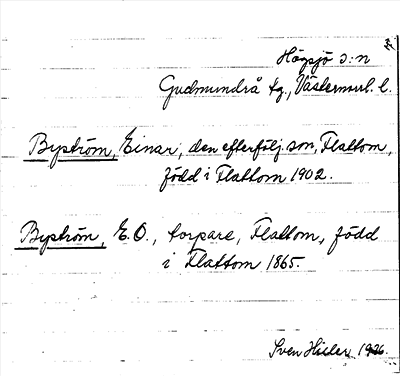 Högsjö s:n
Gudmundrå tg., Västernorrl. l.
Byström, Einar, den efterfölj. son, Flattom,
född i Flattom 1902.
Byström, E.O., torpare, Flattom, född
i Flattom 1865.
Sven Hisler, 1926.